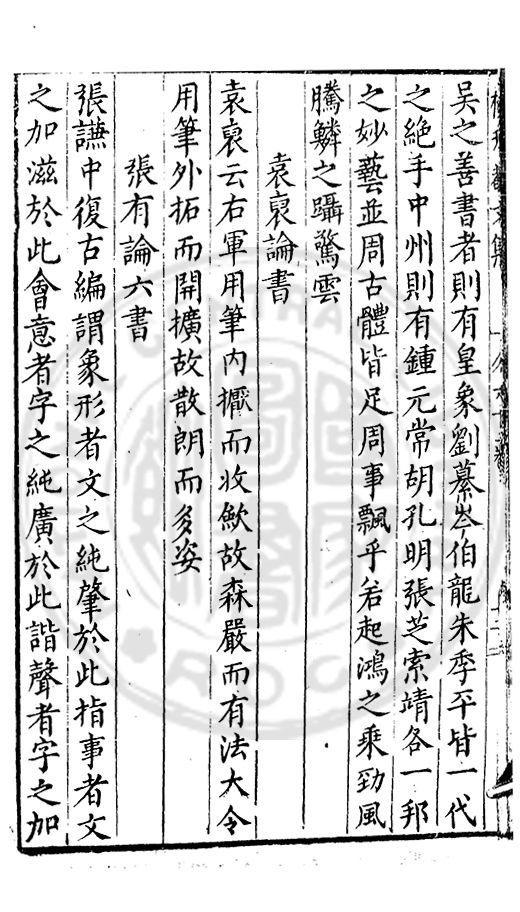 吳之善書者則有皇象劉纂岑伯龍朱季平皆一代
之絶手中州則有鍾元常胡孔明張芝索靖各一邦
之妙藝並周古體皆足周事飄乎若起鴻之乘勁風
騰鱗之躡驚雲
袁裒論書
袁裒云右軍用筆内擫而收斂故森嚴而有法大令
用筆外拓而開擴故散朗而多姿
張有論六書
張謙中復古編謂象形者文之純肇於此指事者文
之加滋於此會意者字之純廣於此諧聲者字之加